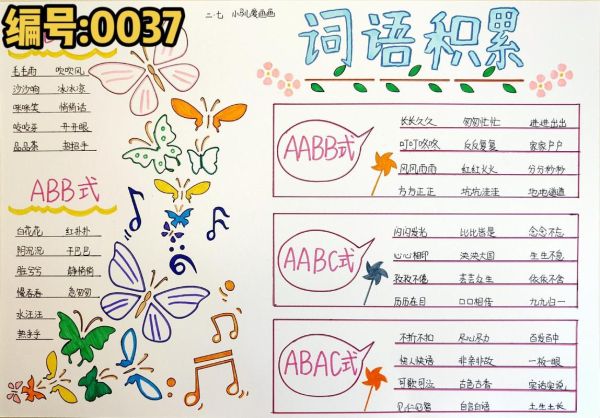 编号:0037
二.七 小
词语积累
毛毛雨 吹吹风
沙沙响 冰冰凉
咪咪笑 悄悄话
咬咬牙 开开眼
品品茶 招招手
ABB式
白花花 红扑扑
阴沉沉 干巴巴
脏兮兮 静悄悄
慢吞吞 急匆匆
水汪汪
热乎乎
AABB式
长长久久 匆匆忙忙 进进出出
叮叮咚咚 反反复复 家家户户
风风雨雨 红红火火 分分秒秒
方方正正 坑坑洼洼 地地道道
AABC式
闪闪发光 比比皆是 念念不忘
心心相印 泱泱大国 生生不息
孜孜不倦 芸芸众生 依依不舍
历历在目 口口相传 九九归一
ABAC式
不折不扣 尽心尽力 百发百中
快人快语 非亲非故 一板一眼
可歌可泣 古色古香 实话实说
自言自语 土生土长